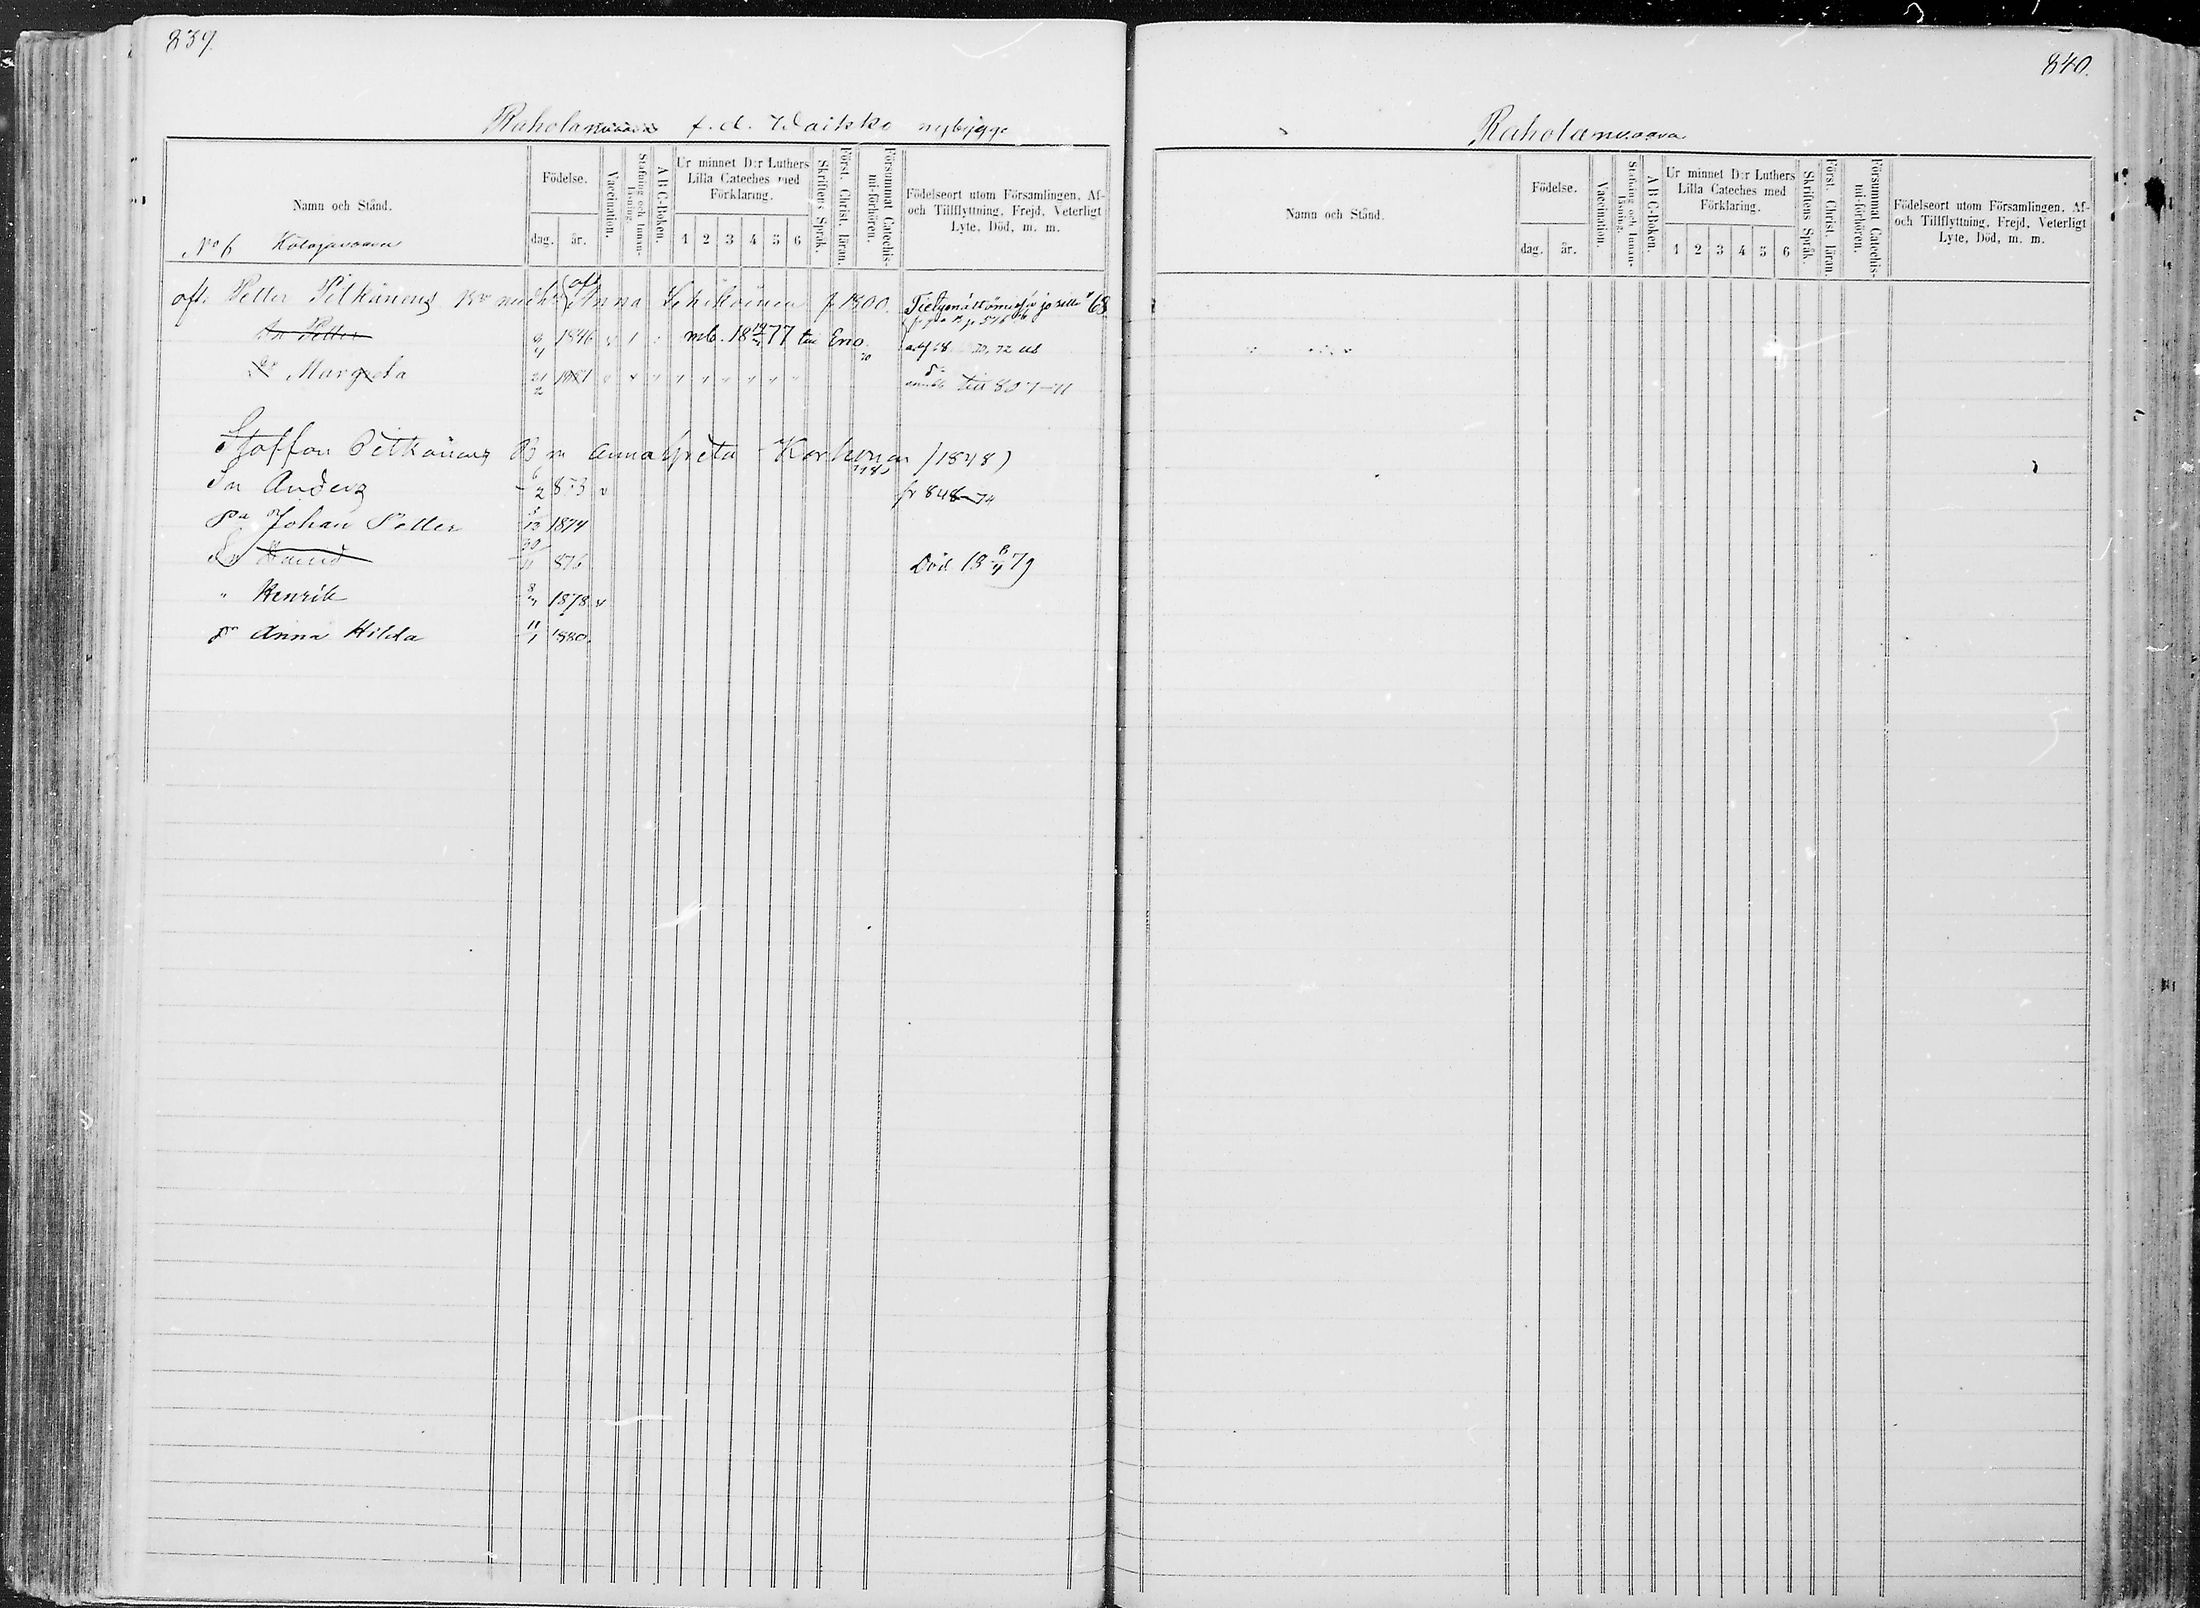 839.
Raholanvaara f. d. Waitsko nybygge
Namn och Stånd.
Födelse.
dag. år.
Vaccination.
Stafning och Innan-läsning.
A B C-Boken.
Ur minnet D:r Luthers Lilla Cateches med Förklaring.
1 2 3 4 5 6
Skriftens Språk.
Först. Christ. läran.
Försummat Catechis-mi-förhören.
Födelseort utom Församlingen, Af- och Tillflyttning, Frejd, Veterligt Lyte, Död, m. m.
No 6
aft. Petter Pitkänens Anna f. 1800. 68
Sn Petter 9/4 1846 mb. 18 77 till Eno
Margreta 21/2 till 807-71
Staffan Pitkänens Anna Greta Korhonen /1848)
Sn Anders 6/2 873 v fr 848-74
Johan Petter 1874
David 30/11 876 Död 79
" Henrik 1878 v
Anna Hilda 11/1 1880.
840.
Raholanvaara
Namn och Stånd.
Födelse.
dag. år.
Vaccination.
Stafning och Innan-läsning.
A B C-Boken.
Ur minnet D:r Luthers Lilla Cateches med Förklaring.
1 2 3 4 5 6
Skriftens Språk.
Först. Christ. läran.
Försummat Catechis-mi-förhören.
Födelseort utom Församlingen, Af- och Tillflyttning, Frejd, Veterligt Lyte, Död, m. m.